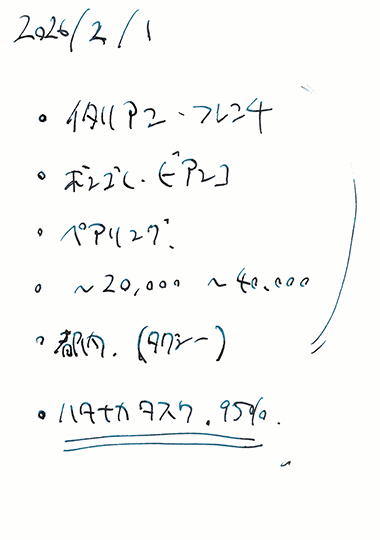 2026/2/1
・イタリアン・フレンチ
・ペアリング.
・ ~20,000 ~40,000
・都内. (タクシー)
・ハタナカタスク. 95%.